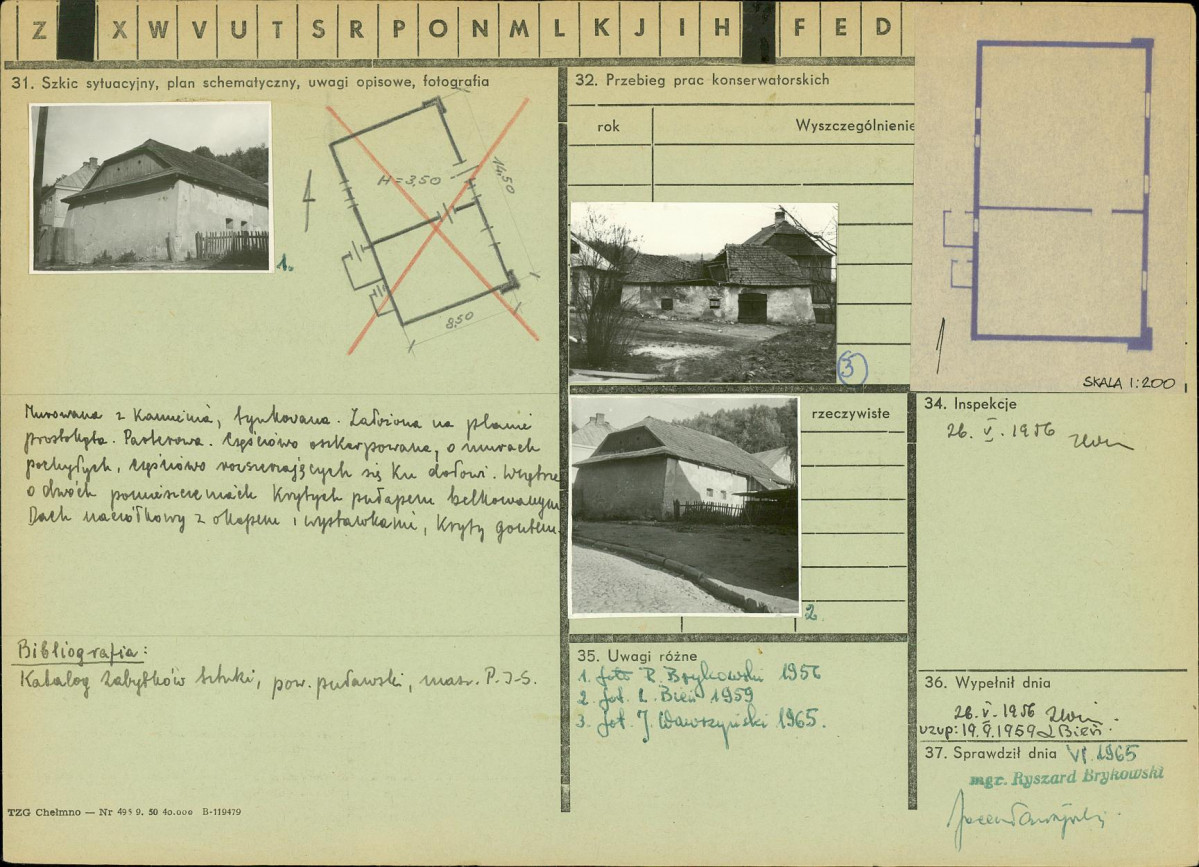 Z X W V U T S R P O N M L K J I H F E D
31. Szkic sytuacyjny, plan schematyczny, uwagi opisowe, fotografia
H=3,50
14,50
8,50
1.
Murowana z kamienia, tynkowana. Założona na planie
prostokąta. Parterowa. Częściowo oszkarpowana, o murach
pochyłych, częściowo rozszerzających się ku dołowi. Wnętrze
o dwóch pomieszczeniach krytych pułapem belkowanym
Dach naczółkowy z okapem i wystawkami, kryty gontem.
Bibliografia:
Katalog Zabytków Sztuki, pow. puławski, masz. P.I.S.
TZG Chełmno — Nr 495 9. 50 40.000 B-119479
32. Przebieg prac konserwatorskich
rok
Wyszczególnienie
3
rzeczywiste
2.
35. Uwagi różne
1. foto R. Brykowski 1956
2 fot. L. Bień 1959
3 fot. J. Wawrzyński 1965.
SKALA 1:200
34. Inspekcje
26. V. 1956
36. Wypełnił dnia
26. V. 1956
uzup: 19. V. 1959 L Bień
37. Sprawdził dnia VI. 1965
mgr. Ryszard Brykowski